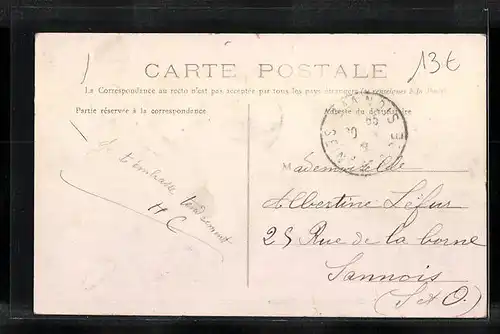 13€
CARTE POSTALE
La Correspondance au recto n'est pas acceptée par tous les pays étrangers (se renseigner à la Poste)
Partie réservée à la correspondance
Adresse du destinataire
SANNOIS
Je t'embrasse tendrement
HC
Mademoiselle
Albertine Léfur
25 Rue de la borne
Sannois
(S & O)